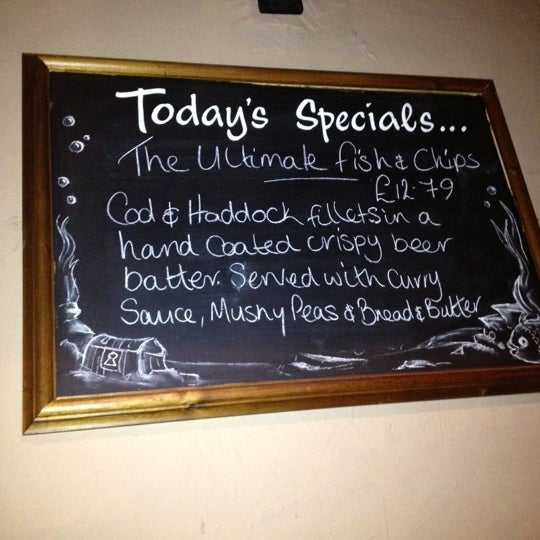 Today's Specials...
The Ultimate fish & Chips
£12.79
Cod & Haddock fillets in a
hand coated crispy beer
batter. Served with Curry
Sauce, Mushy Peas & Bread & Butter